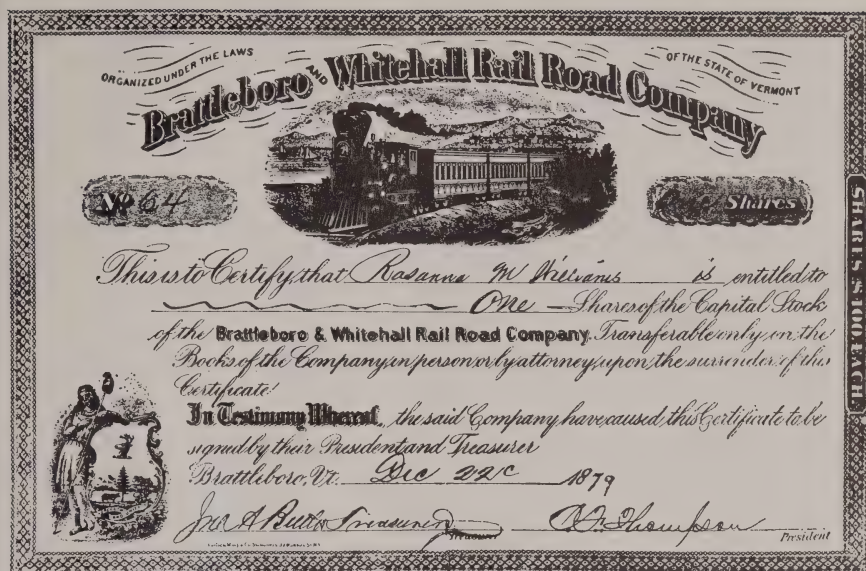 ORGANIZED UNDER THE LAWS
OF THE STATE OF VERMONT
Brattleboro AND Whitehall Rail Road Company
No 64
Shares
This is to Certify that Rosanna M Williams is entitled to
One Shares of the Capital Stock
of the Brattleboro & Whitehall Rail Road Company. Transferable only on the
Books of the Company in person or by attorney, upon the surrender of this
Certificate
In Testimony Whereof, the said Company have caused this Certificate to be
signed by their President and Treasurer
Brattleboro, Vt. Dec 22 1879
Treasurer
Treasurer
Thompson
President
SHARES $100 EACH.